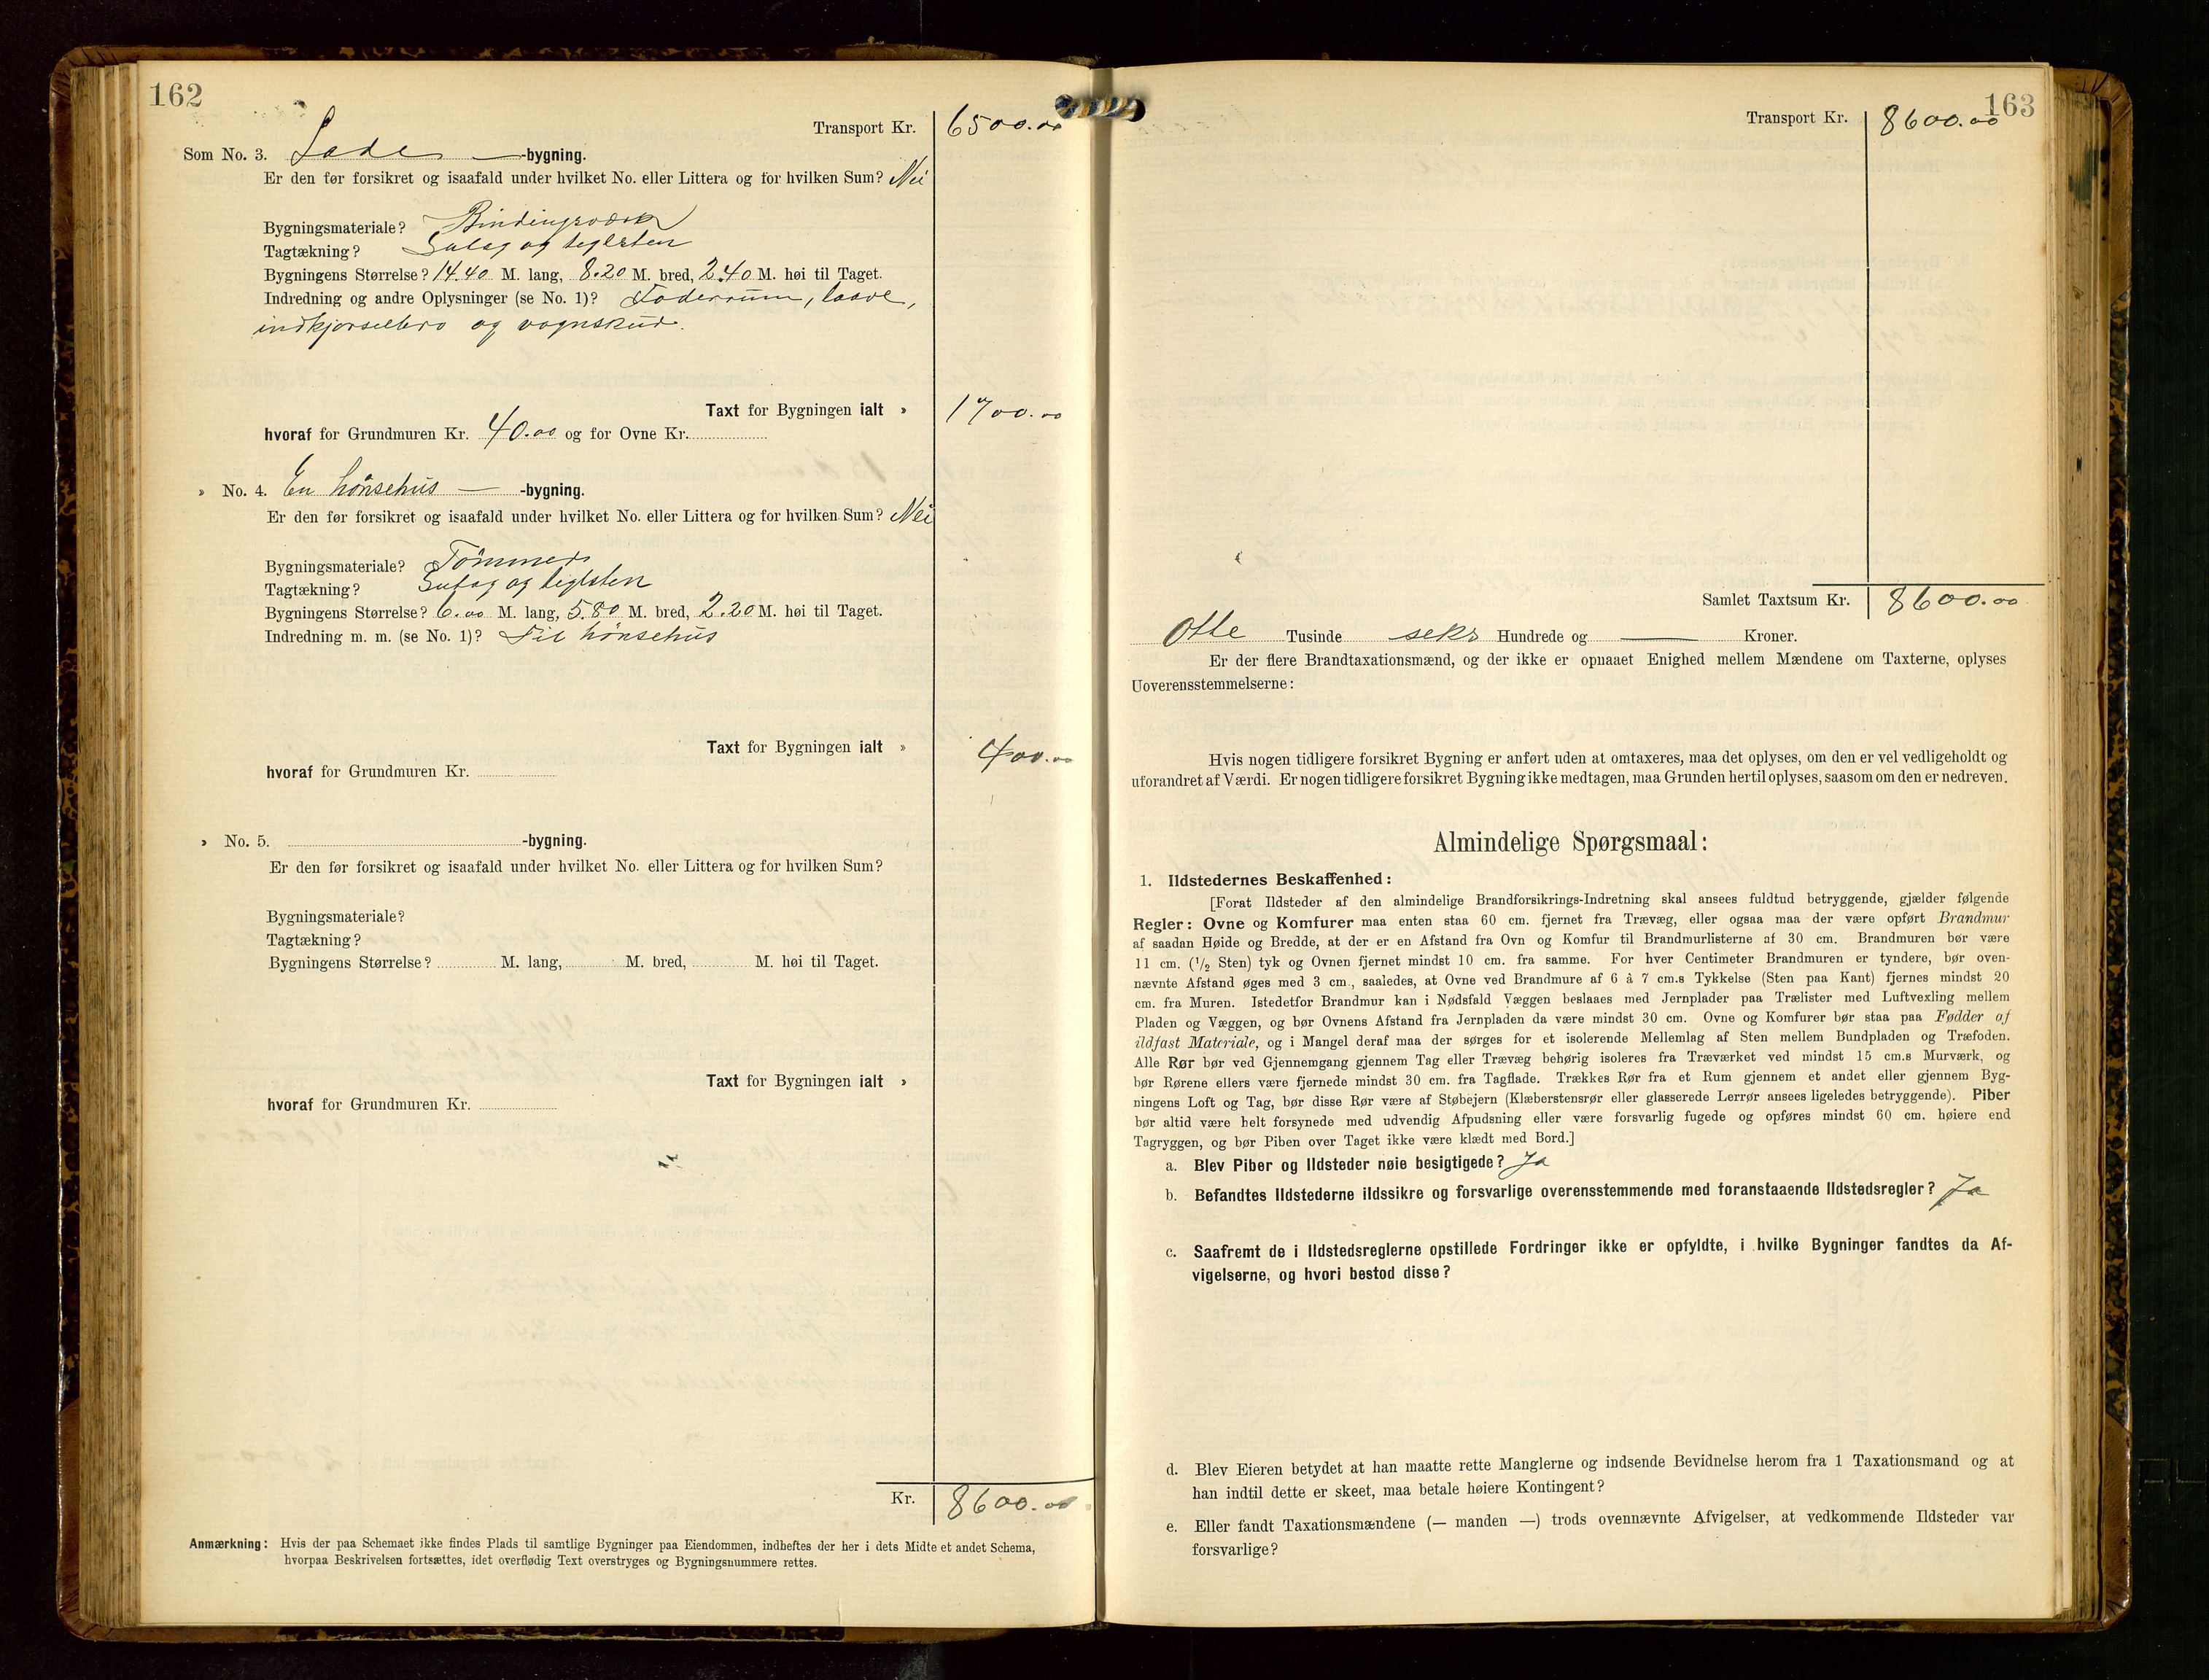 162
Transport Kr. 6500.00
Som No. 3. Lade — -bygning.
Er den før forsikret og isaafald under hvilket No. eller Littera og for hvilken Sum? Nei
Bygningsmateriale? Bindingsværk
Tagtækning? Sutag og teglsten
Bygningens Størrelse? 14.40 M. lang, 8.20 M. bred, 2.40 M. høi til Taget.
Indredning og andre Oplysninger (se No. 1)? Foderrum, laave,
indkjørselbro og vognskur.
Taxt for Bygningen ialt » 1700.00
hvoraf for Grundmuren Kr. 40.00 og for Ovne Kr.
» No. 4. En hønsehus — -bygning.
Er den før forsikret og isaafald under hvilket No. eller Littera og for hvilken Sum? Nei
Bygningsmateriale? Tømmer
Tagtækning? Sutag og teglsten
Bygningens Størrelse? 6.00 M. lang, 5.80 M. bred, 2.20 M. høi til Taget.
Indredning m. m. (se No. 1)? Til hønsehus
Taxt for Bygningen ialt » 400.00
hvoraf for Grundmuren Kr.
» No. 5. -bygning.
Er den før forsikret og isaafald under hvilket No. eller Littera og for hvilken Sum?
Bygningsmateriale?
Tagtækning?
Bygningens Størrelse? M. lang, M. bred, M. høi til Taget.
Taxt for Bygningen ialt »
hvoraf for Grundmuren Kr.
Kr. 8600.00
Anmærkning: Hvis der paa Schemaet ikke findes Plads til samtlige Bygninger paa Eiendommen, indheftes der her i dets Midte et andet Schema,
hvorpaa Beskrivelsen fortsættes, idet overflødig Text overstryges og Bygningsnummere rettes.
163
Transport Kr. 8600.00
Samlet Taxtsum Kr. 8600.00
Otte Tusinde seks Hundrede og — Kroner.
Er der flere Brandtaxationsmænd, og der ikke er opnaaet Enighed mellem Mændene om Taxterne, oplyses
Uoverensstemmelserne:
Hvis nogen tidligere forsikret Bygning er anført uden at omtaxeres, maa det oplyses, om den er vel vedligeholdt og
uforandret af Værdi. Er nogen tidligere forsikret Bygning ikke medtagen, maa Grunden hertil oplyses, saasom om den er nedreven.
Almindelige Spørgsmaal:
1. Ildstedernes Beskaffenhed:
[Forat Ildsteder af den almindelige Brandforsikrings-Indretning skal ansees fuldtud betryggende, gjælder følgende
Regler: Ovne og Komfurer maa enten staa 60 cm. fjernet fra Trævæg, eller ogsaa maa der være opført Brandmur
af saadan Høide og Bredde, at der er en Afstand fra Ovn og Komfur til Brandmurlisterne af 30 cm. Brandmuren bør være
11 cm. (1/2 Sten) tyk og Ovnen fjernet mindst 10 cm. fra samme. For hver Centimeter Brandmuren er tyndere, bør oven-
nævnte Afstand øges med 3 cm., saaledes, at Ovne ved Brandmure af 6 à 7 cm.s Tykkelse (Sten paa Kant) fjernes mindst 20
cm. fra Muren. Istedetfor Brandmur kan i Nødsfald Væggen beslaaes med Jernplader paa Trælister med Luftvexling mellem
Pladen og Væggen, og bør Ovnens Afstand fra Jernpladen da være mindst 30 cm. Ovne og Komfurer bør staa paa Fødder af
ildfast Materiale, og i Mangel deraf maa der sørges for et isolerende Mellemlag af Sten mellem Bundpladen og Træfoden.
Alle Rør bør ved Gjennemgang gjennem Tag eller Trævæg behørig isoleres fra Træværket ved mindst 15 cm.s Murværk, og
bør Rørene ellers være fjernede mindst 30 cm. fra Tagflade. Trækkes Rør fra et Rum gjennem et andet eller gjennem Byg-
ningens Loft og Tag, bør disse Rør være af Støbejern (Klæberstensrør eller glasserede Lerrør ansees ligeledes betryggende). Piber
bør altid være helt forsynede med udvendig Afpudsning eller være forsvarlig fugede og opføres mindst 60 cm. høiere end
Tagryggen, og bør Piben over Taget ikke være klædt med Bord.]
a. Blev Piber og Ildsteder nøie besigtigede? Ja
b. Befandtes Ildstederne ildssikre og forsvarlige overensstemmende med foranstaaende Ildstedsregler? Ja
c. Saafremt de i Ildstedsreglerne opstillede Fordringer ikke er opfyldte, i hvilke Bygninger fandtes da Af-
vigelserne, og hvori bestod disse?
d. Blev Eieren betydet at han maatte rette Manglerne og indsende Bevidnelse herom fra 1 Taxationsmand og at
han indtil dette er skeet, maa betale høiere Kontingent?
e. Eller fandt Taxationsmændene (— manden —) trods ovennævnte Afvigelser, at vedkommende Ildsteder var
forsvarlige?